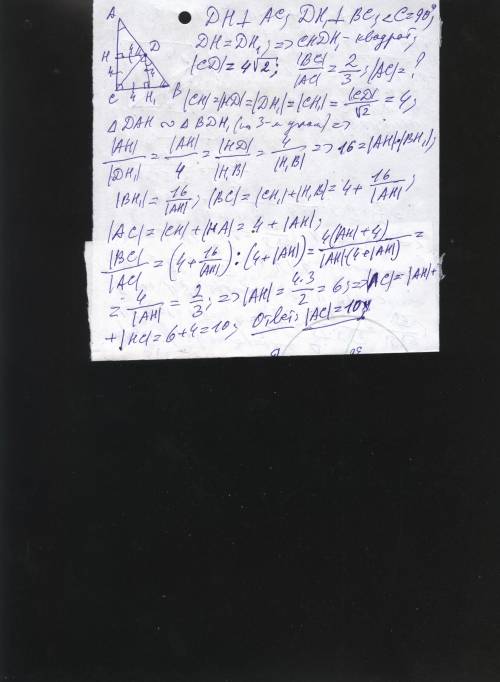 A
H 4 4 D
4 4
C 4 H₁ B
DH ⊥ AC; DH₁ ⊥ BC; ∠C=90°;
DH = DH₁; => CHDH₁ - квадрат;
|CD| = 4√2; |BC|/|AC| = 2/3; |AC| = ?
|CH|=|HD|=|DH₁|=|CH₁|=|CD|/√2 = 4;
△DAH ∾ △BDH₁ (по 3-м углам) =>
|AH|/|DH₁| = |AH|/4 = |HD|/|H₁B| = 4/|H₁B| => 16=|AH|·|BH₁|;
|BH₁| = 16/|AH|; |BC|=|CH₁|+|H₁B|= 4 + 16/|AH|;
|AC| = |CH|+|HA| = 4 + |AH|;
|BC|/|AC| = (4+16/|AH|) : (4+|AH|) = 4(|AH|+4)/|AH|·(4+|AH|) =
= 4/|AH| = 2/3; => |AH| = 4·3/2 = 6; => |AC| = |AH|+
+|HC| = 6+4=10; Ответ: |AC|=10;